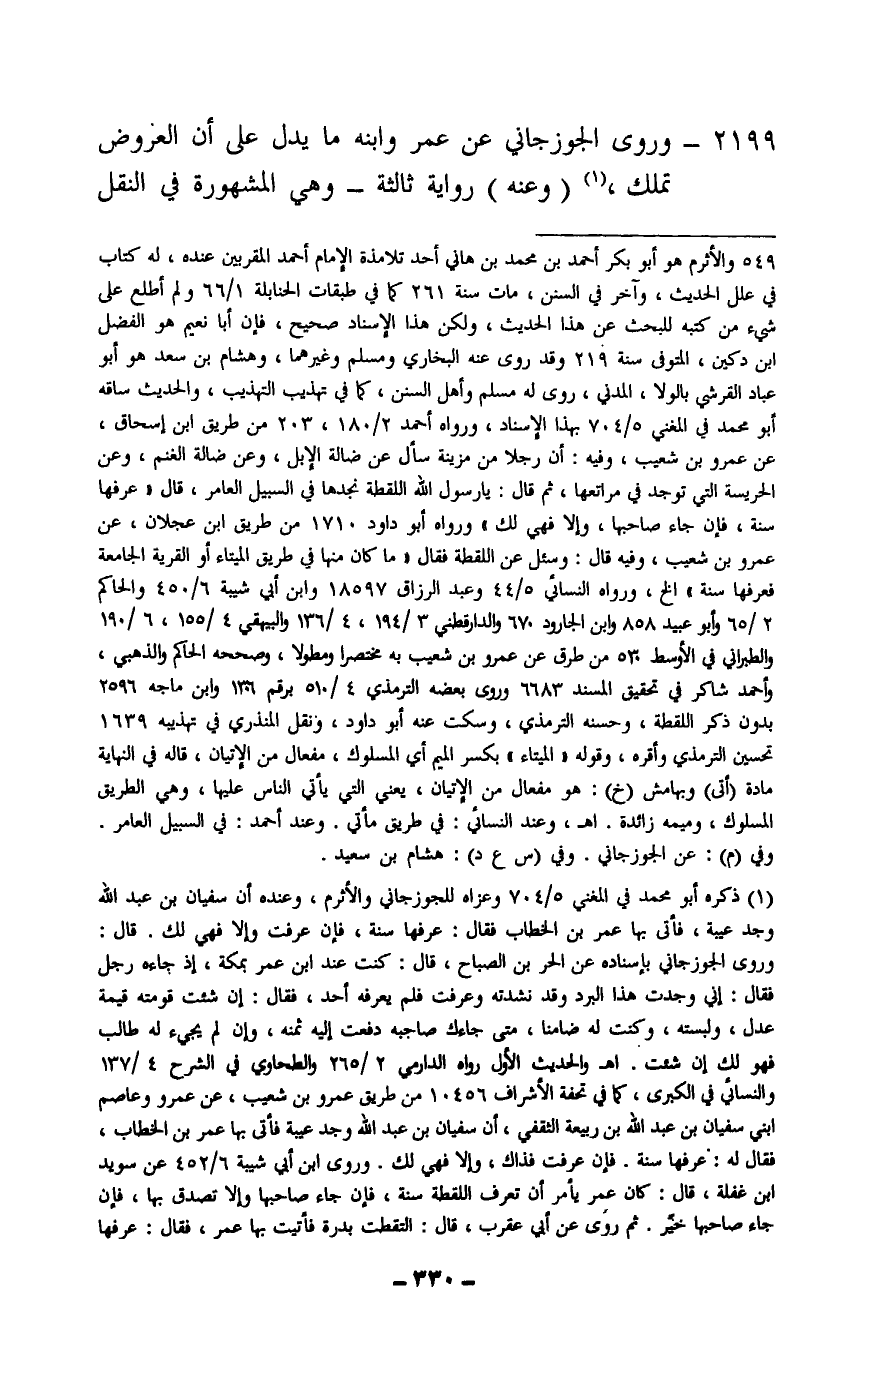 ٢١٩٩ ـ وروى الجوزجاني عن عمر وابنه ما يدل على أن العروض
تملك ،(١) ( وعنه ) رواية ثالثة ـ وهي المشهورة في النقل
٥٤٩ والأثرم هو أبو بكر أحمد بن محمد بن هاني أحد تلامذة الإمام أحمد المقربين عنده ، له كتاب
في علل الحديث ، وآخر في السنن ، مات سنة ٢٦١ كما في طبقات الحنابلة ٦٦/١ ولم أطلع على
شيء من كتبه للبحث عن هذا الحديث ، ولكن هذا الإسناد صحيح ، فإن أبا نعيم هو الفضل
ابن دكين ، المتوفى سنة ٢١٩ وقد روى عنه البخاري ومسلم وغيرهما ، وهشام بن سعد هو أبو
عباد القرشي بالولا ، المدني ، روى له مسلم وأهل السنن ، كما في تهذيب التهذيب ، والحديث ساقه
أبو محمد في المغني ٧٠٤/٥ بهذا الإسناد ، ورواه أحمد ١٨٠/٢ ، ٢٠٣ من طريق ابن إسحاق ،
عن عمرو بن شعيب ، وفيه : أن رجلا من مزينة سأل عن ضالة الإبل ، وعن ضالة الغنم ، وعن
الحريسة التي توجد في مراتعها ، ثم قال : يارسول الله اللقطة نجدها في السبيل العامر ، قال « عرفها
سنة ، فإن جاء صاحبها ، وإلا فهي لك » ورواه أبو داود ١٧١٠ من طريق ابن عجلان ، عن
عمرو بن شعيب ، وفيه قال : وسئل عن اللقطة فقال « ما كان منها في طريق الميتاء أو القرية الجامعة
فعرفها سنة » الخ ، ورواه النسائي ٤٤/٥ وعبد الرزاق ١٨٥٩٧ وابن أبي شيبة ٤٥٠/٦ والحاكم
٢ /٦٥ وأبو عبيد ٨٥٨ وابن الجارود ٦٧٠ والدارقطني ٣ /١٩٤ ، ٤ /١٣٦ والبيهقي ٤ /١٥٥ ، ٦ /١٩٠
والطبراني في الأوسط ٥٣٠ من طرق عن عمرو بن شعيب به مختصرا ومطولا ، وصححه الحاكم والذهبي ،
وأحمد شاكر في تحقيق المسند ٦٦٨٣ وروى بعضه الترمذي ٤ /٥١٠ برقم ١٣٠٦ وابن ماجه ٢٥٩٦
بدون ذكر اللقطة ، وحسنه الترمذي ، وسكت عنه أبو داود ، ونقل المنذري في تهذيبه ١٦٣٩
تحسين الترمذي وأقره ، وقوله « الميتاء » بكسر الميم أي المسلوك ، مفعال من الإتيان ، قاله في النهاية
مادة (أتى) وبهامش (خ) : هو مفعال من الإتيان ، يعني التي يأتي الناس عليها ، وهي الطريق
المسلوك ، وميمه زائدة . اهـ ، وعند النسائي : في طريق مأتي . وعند أحمد : في السبيل العامر .
وفي (م) : عن الجوزجاني . وفي (س ع د) : هشام بن سعيد .
(١) ذكره أبو محمد في المغني ٧٠٤/٥ وعزاه للجوزجاني والأثرم ، وعنده أن سفيان بن عبد الله
وجد عيبة ، فأتى بها عمر بن الخطاب فقال : عرفها سنة ، فإن عرفت وإلا فهي لك . قال :
وروى الجوزجاني بإسناده عن الحر بن الصباح ، قال : كنت عند ابن عمر بمكة ، إذ جاءه رجل
فقال : إني وجدت هذا البرد وقد نشدته وعرفت فلم يعرفه أحد ، فقال : إن شئت قومته قيمة
عدل ، ولبسته ، وكنت له ضامنا ، متى جاءك صاحبه دفعت إليه ثمنه ، وإن لم يجيء له طالب
فهو لك إن شئت . اهـ والحديث الأول رواه الدارمي ٢ /٢٦٥ والطحاوي في الشرح ٤ /١٣٧
والنسائي في الكبرى ، كما في تحفة الأشراف ١٠٤٥٦ من طريق عمرو بن شعيب ، عن عمرو وعاصم
ابني سفيان بن عبد الله بن ربيعة الثقفي ، أن سفيان بن عبد الله وجد عيبة فأتى بها عمر بن الخطاب ،
فقال له : عرفها سنة . فإن عرفت فذاك ، وإلا فهي لك . وروى ابن أبي شيبة ٤٥٢/٦ عن سويد
ابن غفلة ، قال : كان عمر يأمر أن تعرف اللقطة سنة ، فإن جاء صاحبها وإلا تصدق بها ، فإن
جاء صاحبها خيّر . ثم روى عن أبي عقرب ، قال : التقطت بدرة فأتيت بها عمر ، فقال : عرفها
ـ ٣٣٠ ـ